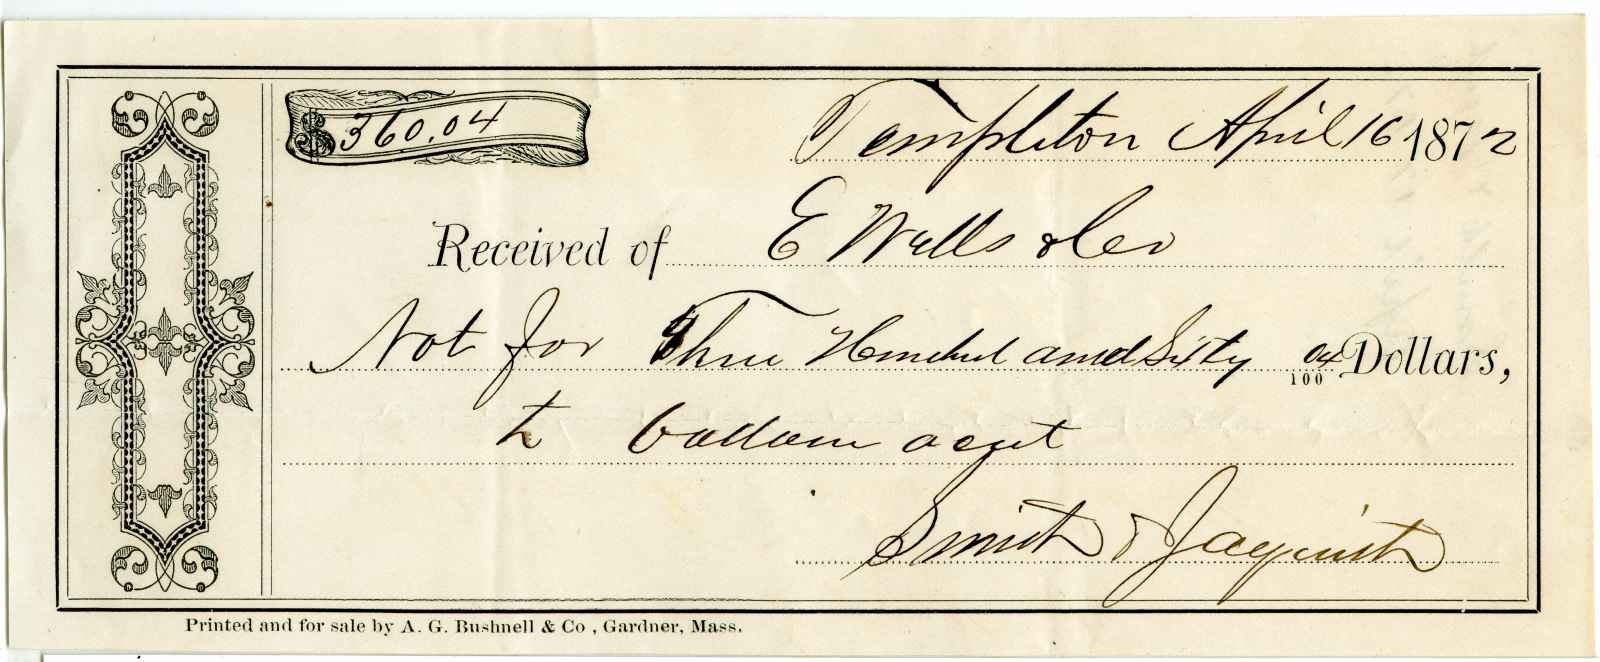 $360.04
Templeton April 16 1872
Received of E Wells & Co
Not for Three Hundred and Sixty 04/100 Dollars,
to ballance acct
Smith & Jaquith
Printed and for sale by A. G. Bushnell & Co, Gardner, Mass.